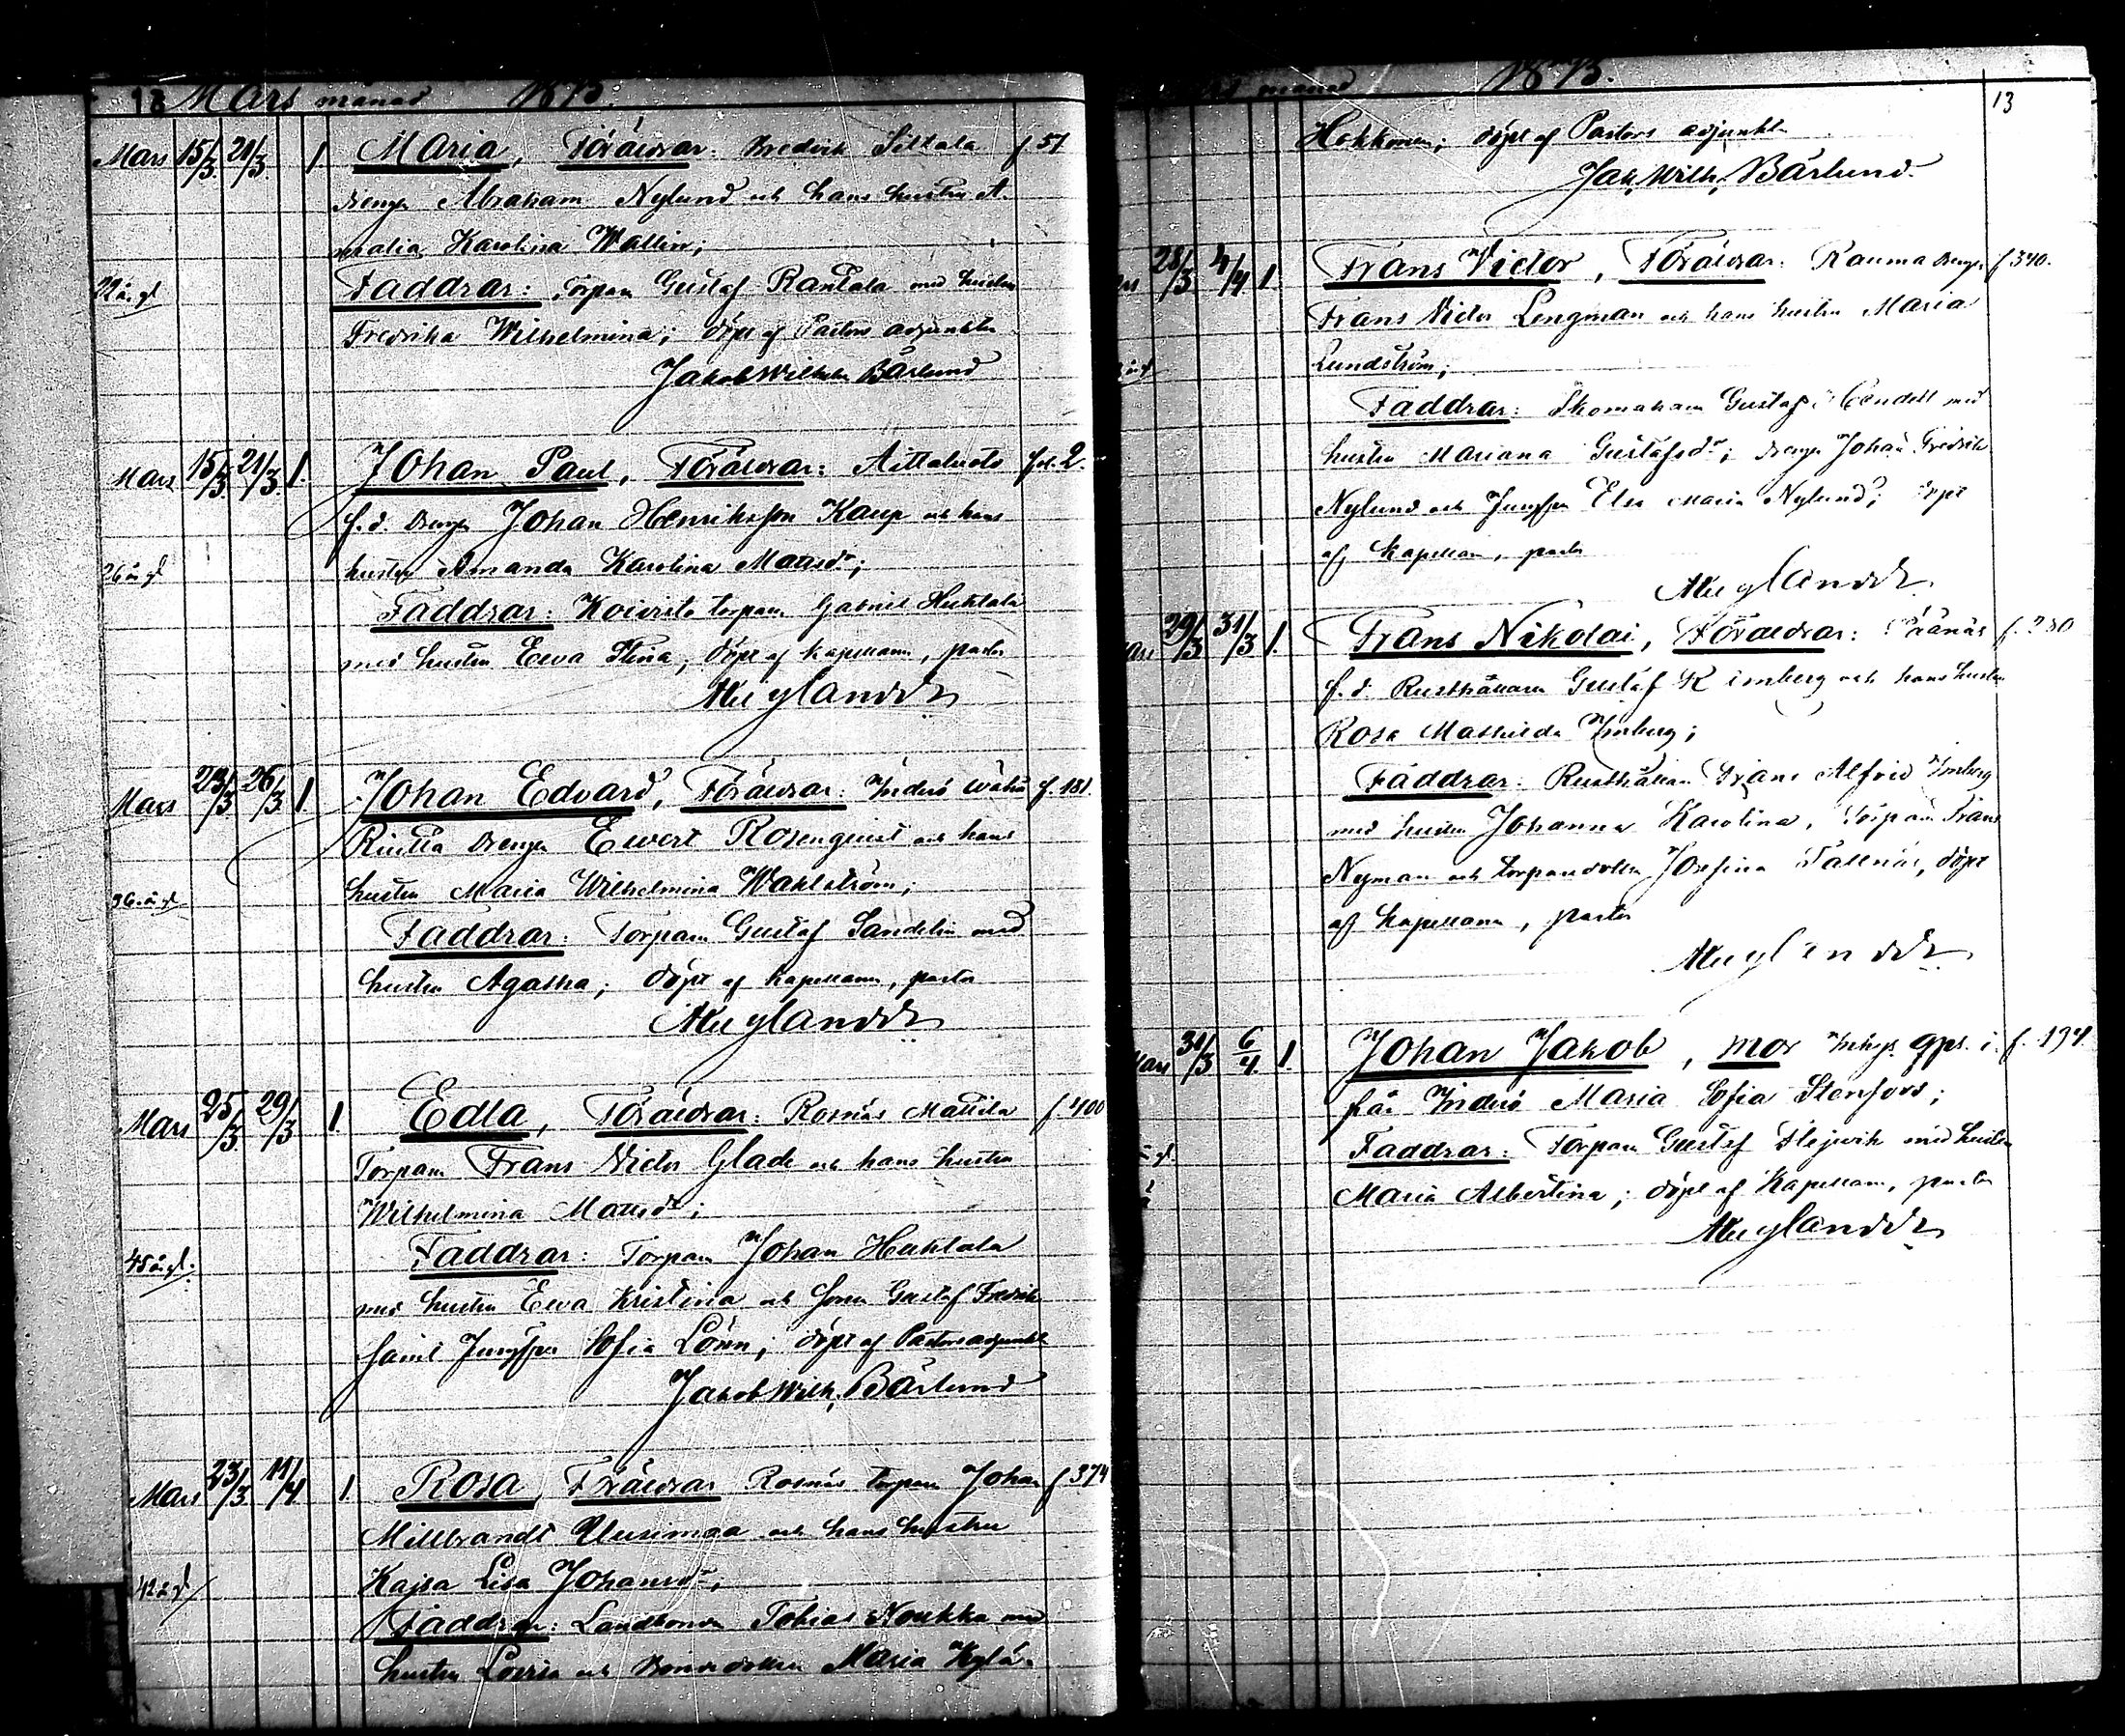 Mars månad 1873.
Mars 15/3 21/3 1 Maria, Föräldrar: Bredvik Sillala f 57
Drengen Abraham Nylund och hans hustru A-
malia Karolina Wallin;
22 å. gl Faddrar: Torparn Gustaf Rantala med hustru
Fredrika Wilhelmina; döpt af Pastors adjunkten
Jakob Wilhelm Bärlund
Mars 15/3 21/3 1. Johan Paul, Föräldrar: Aittaluoto fol. 2.
f.d. Drengen Johan Henriksson Kaup och hans
26 å gl hustru Amanda Karolina Mattsdr;
Faddrar: Koivisto torparn Gabriel Huhtala
med hustru Eeva Stina; döpt af kapellanen, pastor
Nylander
Mars 23/3 26/3 1. Johan Edvard, Föräldrar: Inderö Wähä f. 181.
Rintla Drengen Evert Rosenqvist och hans
36 å gl hustru Maria Wilhelmina Wahlström;
Faddrar: Torparn Gustaf Sandelin med
hustru Agatha; döpt af kapellanen, pastor
Nylander
Mars 25/3 29/3 1. Edla, Föräldrar: Rosnäs Mattila f 400
Torparn Frans Victor Glade och hans hustru
Wilhelmina Mattsdr;
45 å gl. Faddrar: Torparn Johan Huhtala
med hustru Eeva Kristina och Sonen Gustaf Fredrik
samt Jungfrun Sofia Lönn; döpt af Pastorsadjunkten
Jakob Wilh. Bärlund
Mars 23/3 11/4 1. Rosa, Föräldrar Rosnäs torparn Johan f 374
Millbrandt Uusimaa och hans hustru
42 å gl Kajsa Lisa Johansdr,
Faddrar: Landbonden Tobias Noukka med
hustru Lovisa och Bondedottern Maria Kylä-
1873.
13
Hokkonen; döpt af Pastors adjunkten
Jak. Wilh. Bärlund.
28/3 4/4 1. Frans Victor, Föräldrar: Rauma Drengen f 340.
Frans Victor Lengman och hans hustru Maria
Lundström;
Faddrar: Skomakaren Gustaf Hendell med
hustru Mariana Gustafsdr; Drengen Johan Fredrik
Nylund och Jungfrun Elsa Maria Nylund; döpt
af Kapellanen, pastor
Nylander
29/3 31/3 1. Frans Nikolai, Föräldrar: Påånäs f. 280
f.d. Rusthållaren Gustaf Kimberg och hans hustru
Rosa Mathilda Imberg;
Faddrar: Rusthållaren Frans Alfrid Imberg
med hustru Johanna Karolina, Torparn Frans
Nyman och torparedottern Josefina Tallnäs, döpt
af Kapellanen, pastor
Nylander
31/3 6/4 1. Johan Jakob, mor Inhys. qps. i. f. 194
från Inderö Maria Sofia Stenfors;
Faddrar: Torparn Gustaf Flejvik med hustru
Maria Albertina; döpt af Kapellanen, pastor
Nylander